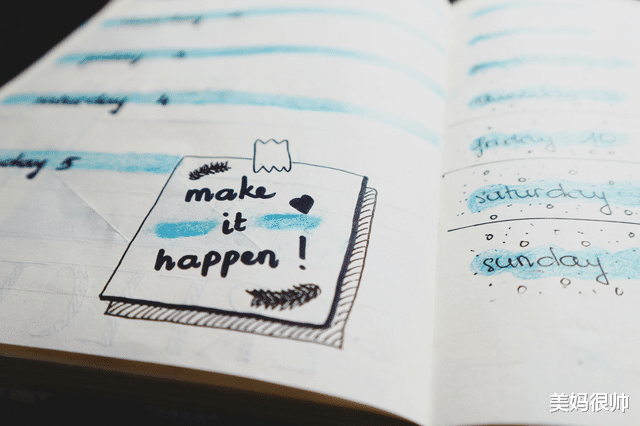 saturday 4
day 5
make
it
happen !
friday 10
saturday
sunday
美妈很帅